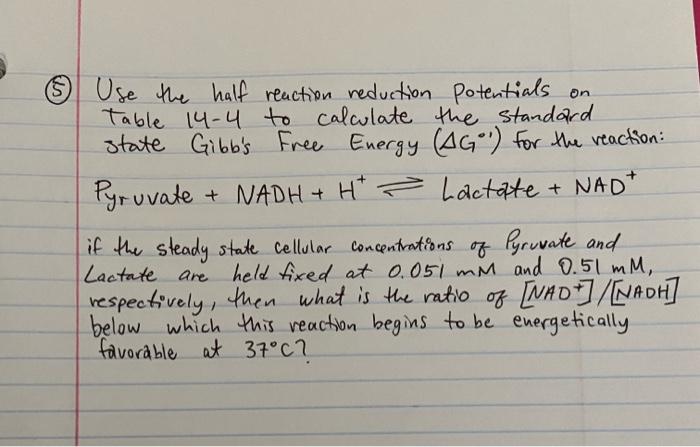 ⑤ Use the half reaction reduction potentials on
Table 14-4 to calculate the standard
state Gibb's Free Energy (ΔG°') for the reaction:
Pyruvate + NADH + H⁺ ⇌ Lactate + NAD⁺
if the steady state cellular concentrations of Pyruvate and
Lactate are held fixed at 0.051 mM and 0.51 mM,
respectively, then what is the ratio of [NAD⁺]/[NADH]
below which this reaction begins to be energetically
favorable at 37°C?